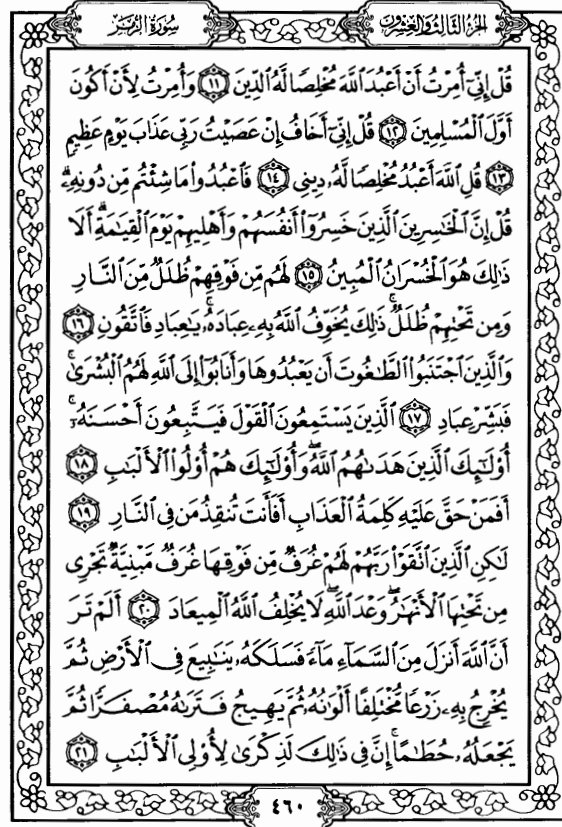 الجزء الثالث والعشرون
سورة الزمر
قُلْ إِنِّىٓ أُمِرْتُ أَنْ أَعْبُدَ ٱللَّهَ مُخْلِصًا لَّهُ ٱلدِّينَ ﴿١١﴾ وَأُمِرْتُ لِأَنْ أَكُونَ
أَوَّلَ ٱلْمُسْلِمِينَ ﴿١٢﴾ قُلْ إِنِّىٓ أَخَافُ إِنْ عَصَيْتُ رَبِّى عَذَابَ يَوْمٍ عَظِيمٍ
﴿١٣﴾ قُلِ ٱللَّهَ أَعْبُدُ مُخْلِصًا لَّهُۥ دِينِى ﴿١٤﴾ فَٱعْبُدُوا۟ مَا شِئْتُم مِّن دُونِهِۦ ۗ
قُلْ إِنَّ ٱلْخَـٰسِرِينَ ٱلَّذِينَ خَسِرُوٓا۟ أَنفُسَهُمْ وَأَهْلِيهِمْ يَوْمَ ٱلْقِيَـٰمَةِ ۗ أَلَا
ذَٰلِكَ هُوَ ٱلْخُسْرَانُ ٱلْمُبِينُ ﴿١٥﴾ لَهُم مِّن فَوْقِهِمْ ظُلَلٌ مِّنَ ٱلنَّارِ
وَمِن تَحْتِهِمْ ظُلَلٌ ۚ ذَٰلِكَ يُخَوِّفُ ٱللَّهُ بِهِۦ عِبَادَهُۥ ۚ يَـٰعِبَادِ فَٱتَّقُونِ ﴿١٦﴾
وَٱلَّذِينَ ٱجْتَنَبُوا۟ ٱلطَّـٰغُوتَ أَن يَعْبُدُوهَا وَأَنَابُوٓا۟ إِلَى ٱللَّهِ لَهُمُ ٱلْبُشْرَىٰ ۚ
فَبَشِّرْ عِبَادِ ﴿١٧﴾ ٱلَّذِينَ يَسْتَمِعُونَ ٱلْقَوْلَ فَيَتَّبِعُونَ أَحْسَنَهُۥٓ ۚ
أُو۟لَـٰٓئِكَ ٱلَّذِينَ هَدَىٰهُمُ ٱللَّهُ ۖ وَأُو۟لَـٰٓئِكَ هُمْ أُو۟لُوا۟ ٱلْأَلْبَـٰبِ ﴿١٨﴾
أَفَمَنْ حَقَّ عَلَيْهِ كَلِمَةُ ٱلْعَذَابِ أَفَأَنتَ تُنقِذُ مَن فِى ٱلنَّارِ ﴿١٩﴾
لَـٰكِنِ ٱلَّذِينَ ٱتَّقَوْا۟ رَبَّهُمْ لَهُمْ غُرَفٌ مِّن فَوْقِهَا غُرَفٌ مَّبْنِيَّةٌ تَجْرِى
مِن تَحْتِهَا ٱلْأَنْهَـٰرُ ۖ وَعْدَ ٱللَّهِ ۖ لَا يُخْلِفُ ٱللَّهُ ٱلْمِيعَادَ ﴿٢٠﴾ أَلَمْ تَرَ
أَنَّ ٱللَّهَ أَنزَلَ مِنَ ٱلسَّمَآءِ مَآءً فَسَلَكَهُۥ يَنَـٰبِيعَ فِى ٱلْأَرْضِ ثُمَّ
يُخْرِجُ بِهِۦ زَرْعًا مُّخْتَلِفًا أَلْوَٰنُهُۥ ثُمَّ يَهِيجُ فَتَرَىٰهُ مُصْفَرًّا ثُمَّ
يَجْعَلُهُۥ حُطَـٰمًا ۚ إِنَّ فِى ذَٰلِكَ لَذِكْرَىٰ لِأُو۟لِى ٱلْأَلْبَـٰبِ ﴿٢١﴾
٤٦٠